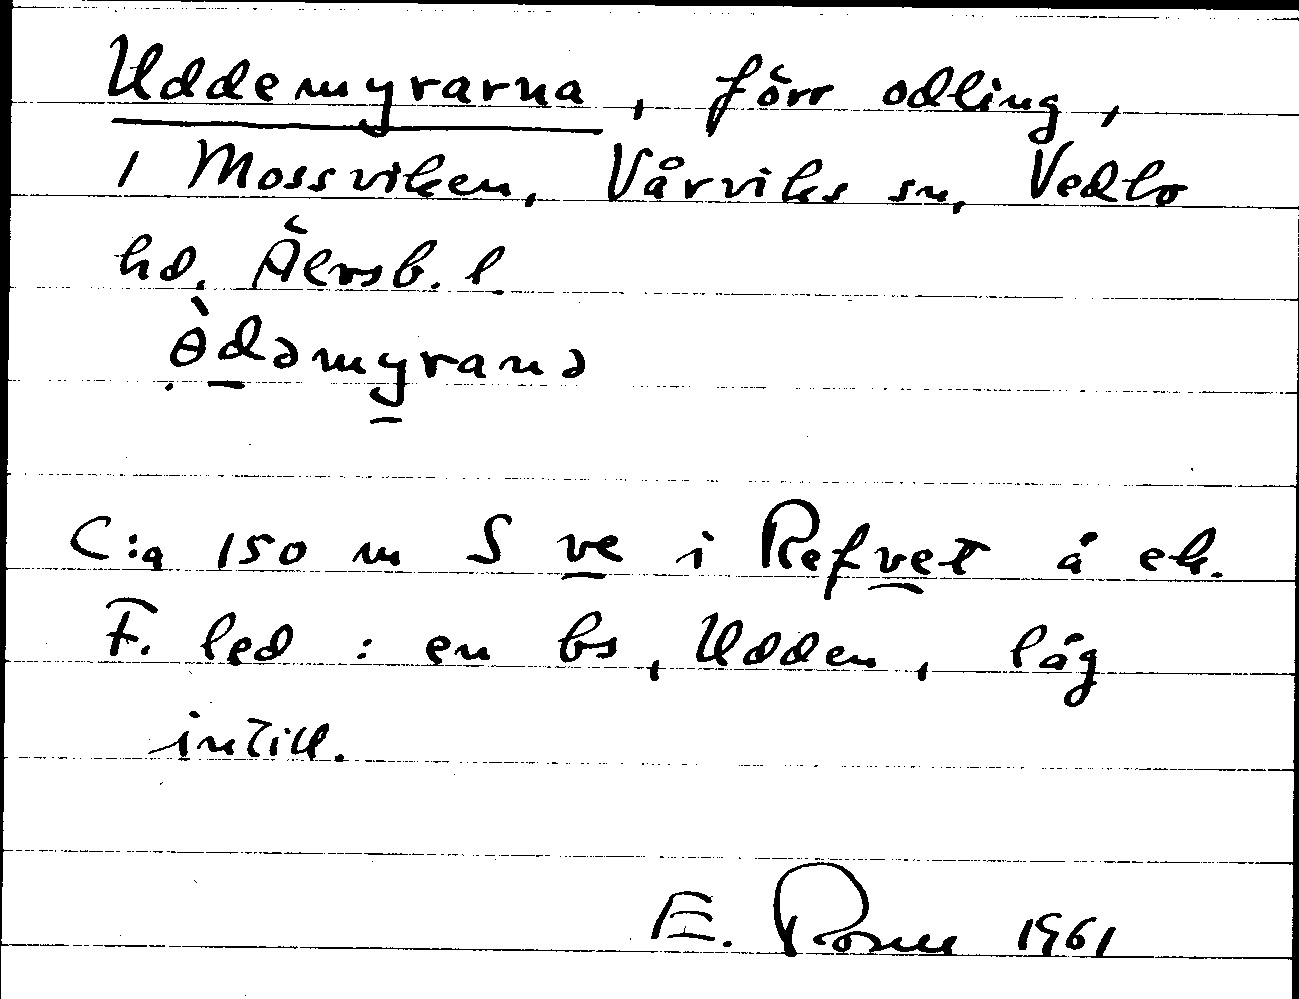 Uddemyrarna, förr odling,
i Mossviken, Vårviks sn, Vedbo
hd. Älvsb. l.
ə̀dəmyranə
C:a 150 m S ve i Refvet å ek.
F. led : en bs, Udden, låg
intill.
E. 1961